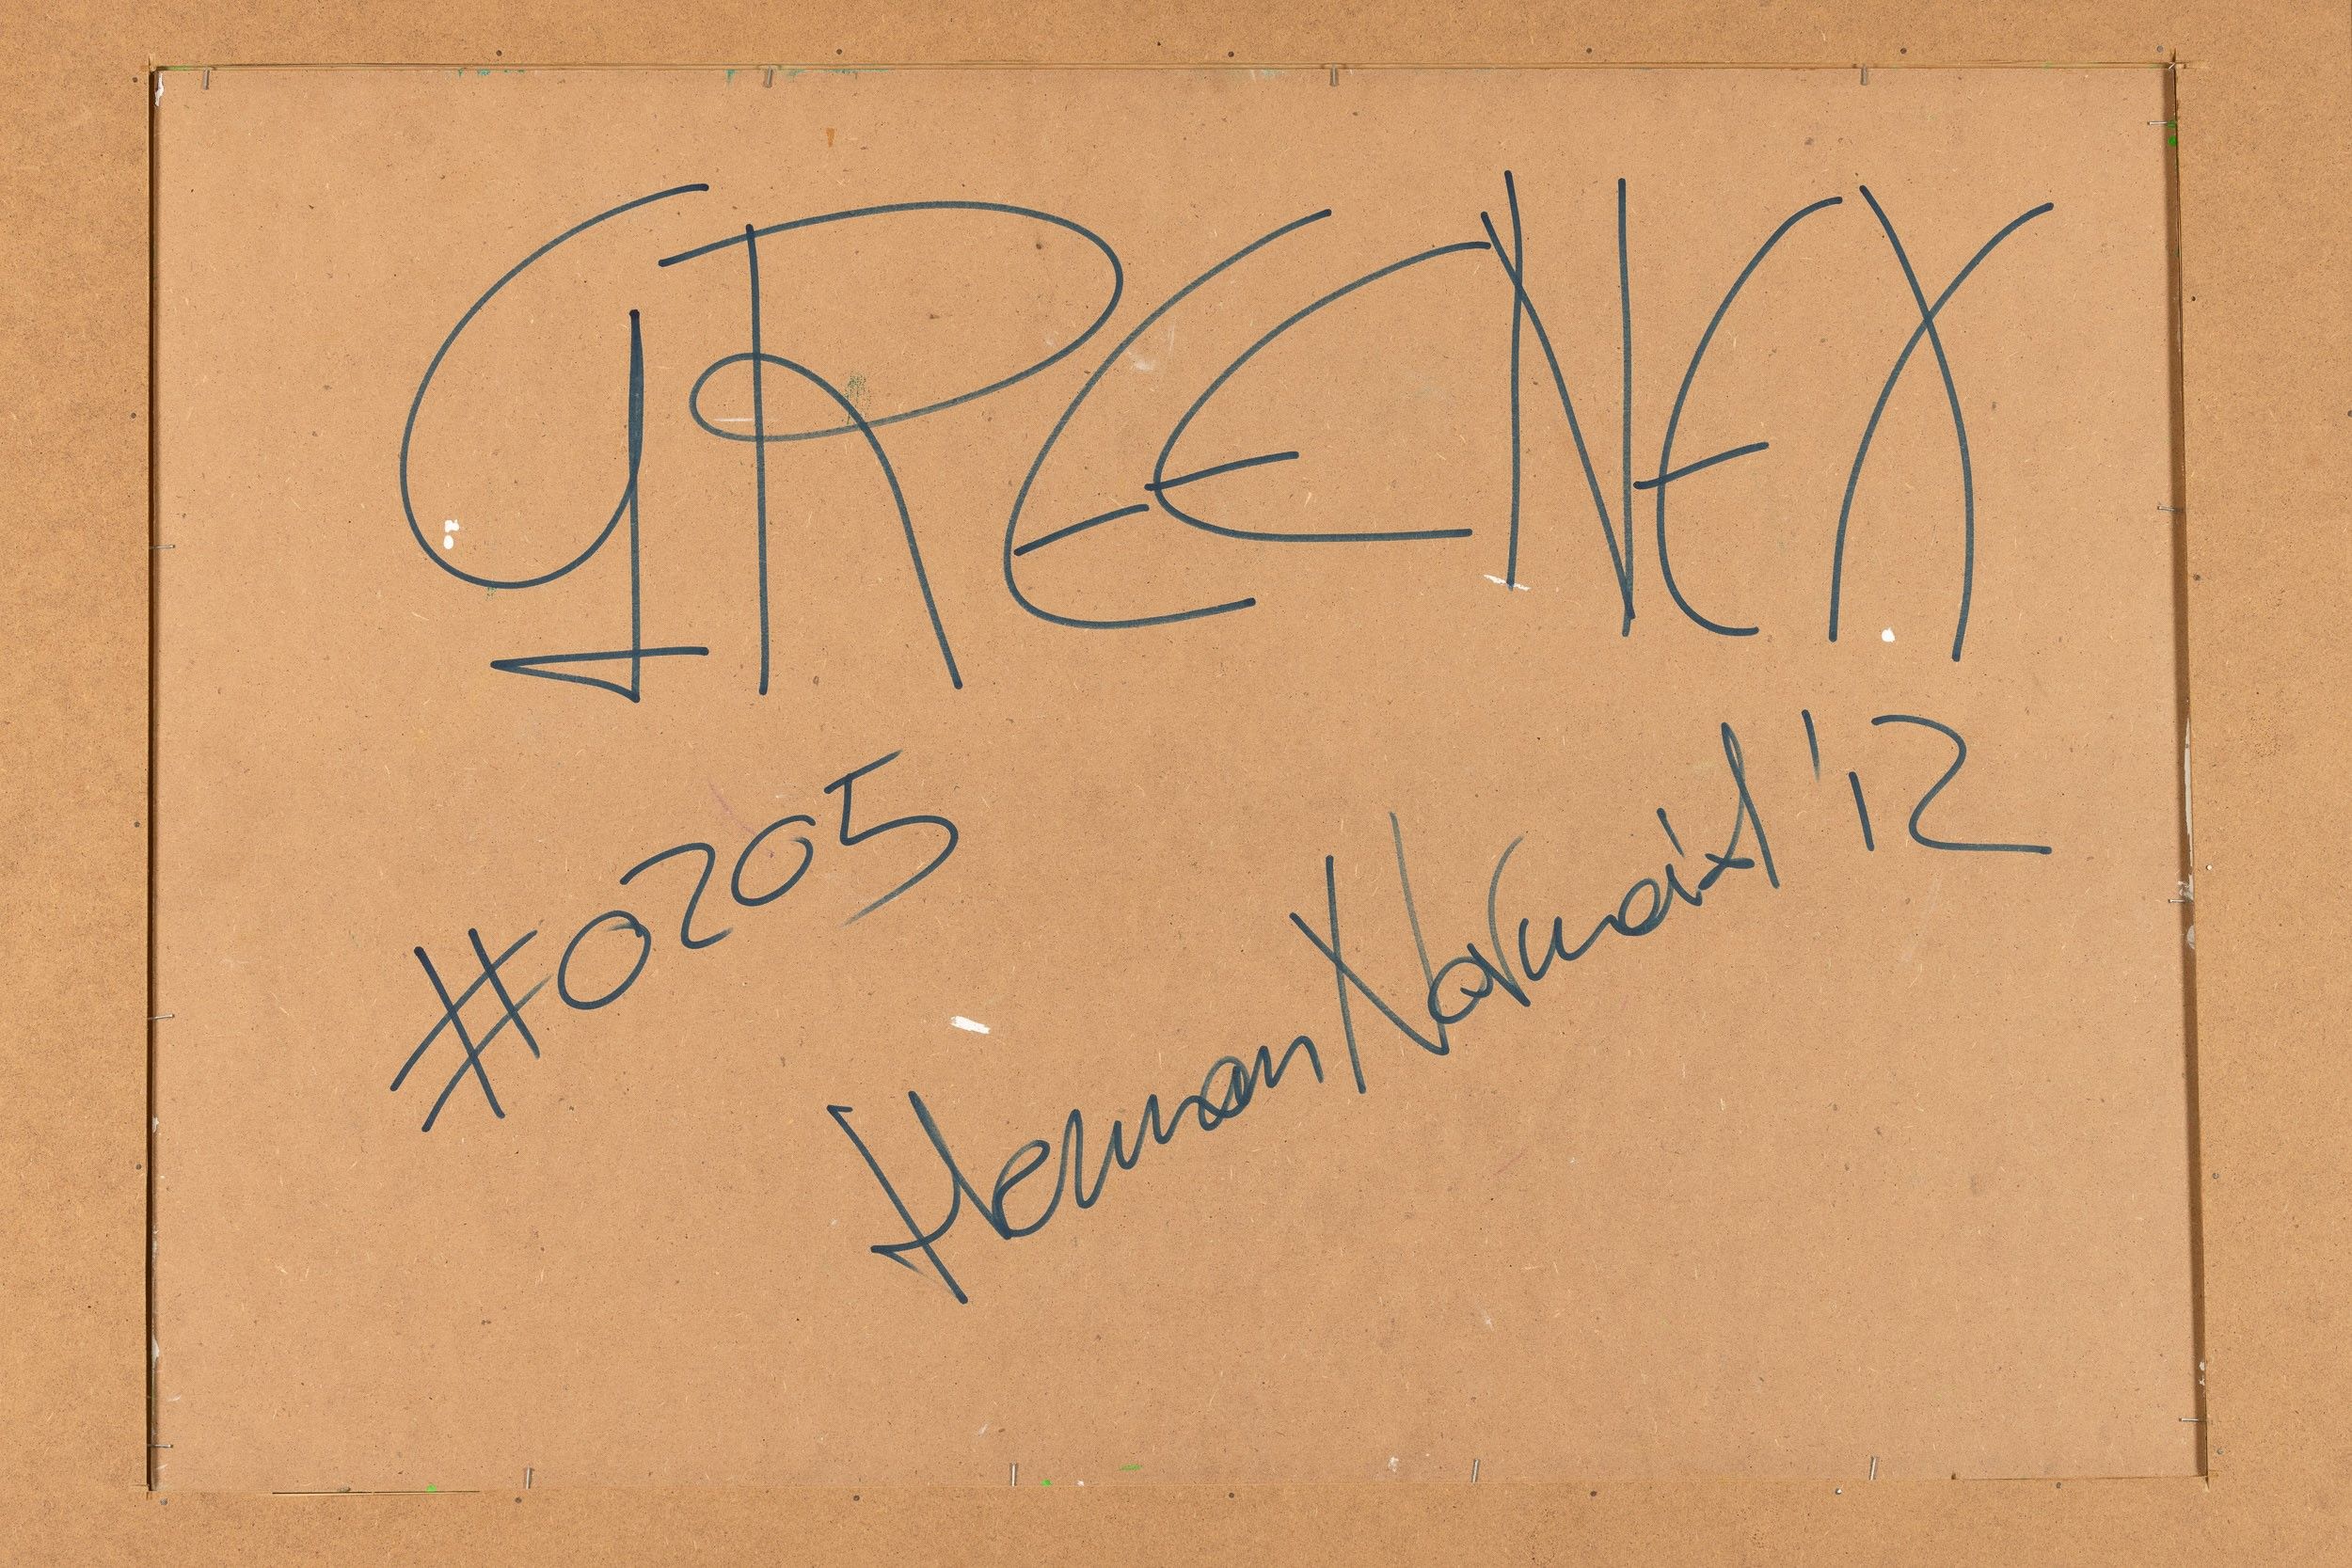 GREENEX
#0205
Herman Normoist '12